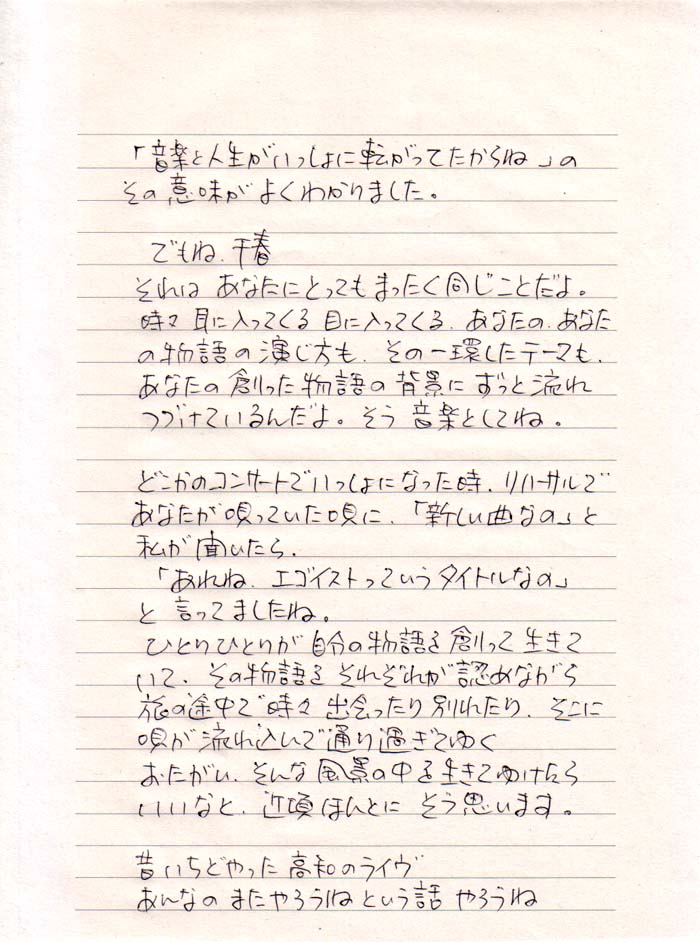 「音楽と人生がいっしょに転がってたからね」の
その意味がよくわかりました。
でもね、千春
それは あなたにとっても まったく同じことだよ。
時々 耳に入ってくる 目に入ってくる、あなたの、あなた
の物語の演じ方も、その一環したテーマも、
あなたの創った物語の背景に ずっと流れ
つづけているんだよ。そう 音楽としてね。
どこかのコンサートでいっしょになった時、リハーサルで
あなたが唄っていた唄に、「新しい曲なの」と
私が聞いたら、
「あれね、エゴイストっていうタイトルなの」
と 言ってましたね。
ひとりひとりが 自分の物語を創って生きて
いて、その物語を それぞれが認めながら
旅の途中で時々 出会ったり 別れたり、そこに
唄が流れ込んで通り過ぎてゆく
おたがい、そんな風景の中を生きてゆけたら
いいなと、近頃ほんとに そう思います。
昔いちどやった 高知のライヴ
あんなの またやろうね という話 やろうね